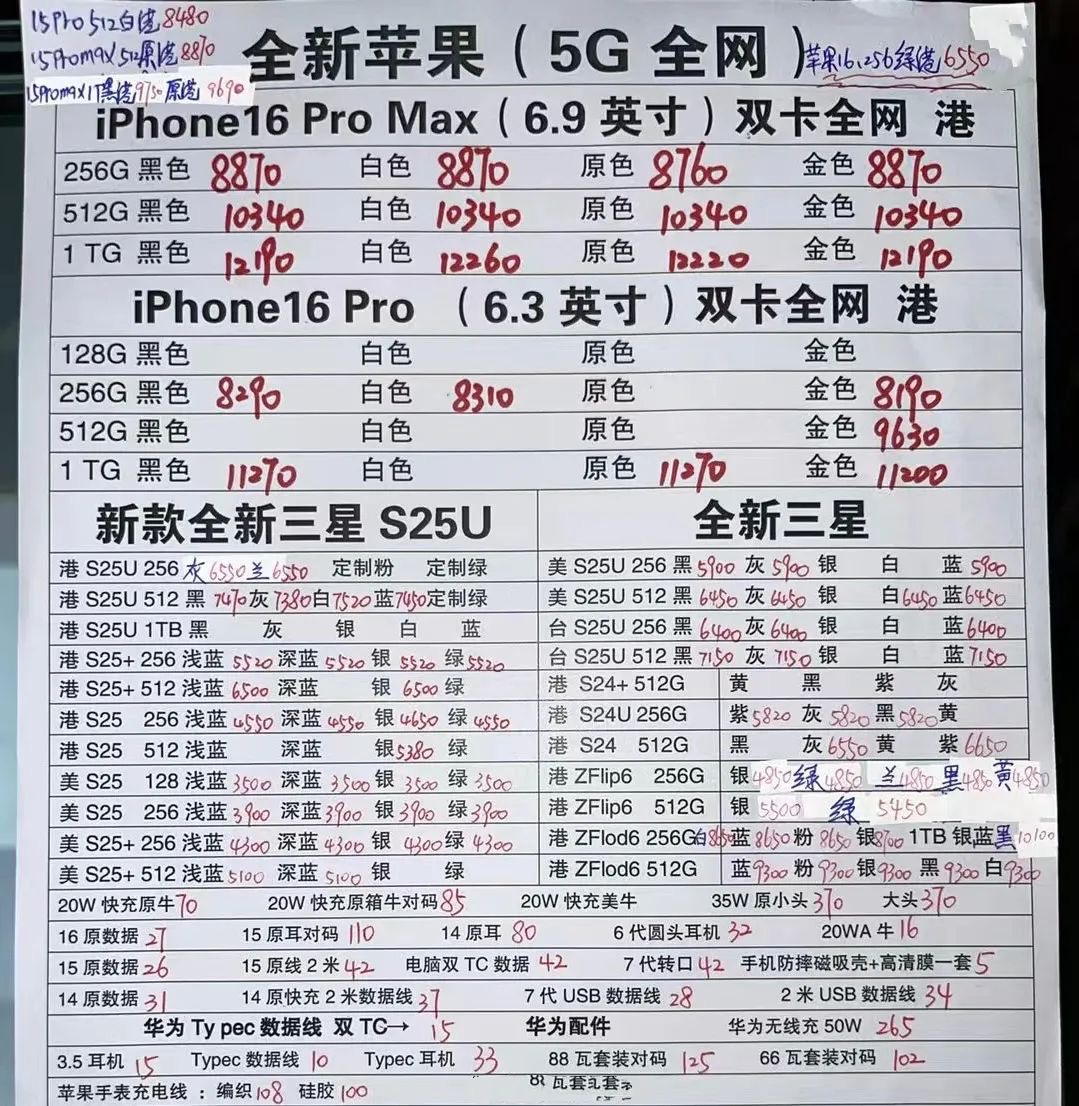 15Pro 512白港8480
15Promax 512原港8870
15Promax1T黑港9750原港9690
全新苹果（5G 全网）
苹果16、256绿港6550
iPhone16 Pro Max（6.9 英寸）双卡全网 港
256G 黑色 8870 白色 8870 原色 8760 金色 8870
512G 黑色 10340 白色 10340 原色 10340 金色 10340
1 TG 黑色 12190 白色 12260 原色 12220 金色 12190
iPhone16 Pro （6.3 英寸）双卡全网 港
128G 黑色 白色 原色 金色
256G 黑色 8290 白色 8310 原色 金色 8190
512G 黑色 白色 原色 金色 9630
1 TG 黑色 11270 白色 原色 11270 金色 11200
新款全新三星 S25U
港 S25U 256 灰6550 兰6550 定制粉 定制绿
港 S25U 512 黑 7470 灰 7380 白 7520 蓝 7450 定制绿
港 S25U 1TB 黑 灰 银 白 蓝
港 S25+ 256 浅蓝 5520 深蓝 5520 银 5520 绿 5520
港 S25+ 512 浅蓝 6500 深蓝 银 6500 绿
港 S25 256 浅蓝 4550 深蓝 4550 银 4650 绿 4550
港 S25 512 浅蓝 深蓝 银 5380 绿
美 S25 128 浅蓝 3500 深蓝 3500 银 3500 绿 3500
美 S25 256 浅蓝 3900 深蓝 3900 银 3900 绿 3900
美 S25+ 256 浅蓝 4300 深蓝 4300 银 4300 绿 4300
美 S25+ 512 浅蓝 5100 深蓝 5100 银 绿
全新三星
美 S25U 256 黑 5900 灰 5900 银 白 蓝 5900
美 S25U 512 黑 6450 灰 6450 银 白 6450 蓝 6450
台 S25U 256 黑 6400 灰 6400 银 白 蓝 6400
台 S25U 512 黑 7150 灰 7150 银 白 蓝 7150
港 S24+ 512G 黄 黑 紫 灰
港 S24U 256G 紫 5820 灰 5820 黑 5820 黄
港 S24 512G 黑 灰 6550 黄 紫 6650
港 ZFlip6 256G 银 4850 绿 4850 兰 4850 黑 4850 黄 4850
港 ZFlip6 512G 银 5500 绿 5450
港 ZFlod6 256G 白8650 蓝 8650 粉 8650 银 8700 1TB 银蓝黑 10100
港 ZFlod6 512G 蓝 9300 粉 9300 银 9300 黑 9300 白 9300
20W 快充原牛 70 20W 快充原箱牛对码 85 20W 快充美牛 35W 原小头 370 大头 370
16 原数据 27 15 原耳对码 110 14 原耳 80 6 代圆头耳机 32 20WA 牛 16
15 原数据 26 15 原线 2 米 42 电脑双 TC 数据 42 7 代转口 42 手机防摔磁吸壳+高清膜一套 5
14 原数据 31 14 原快充 2 米数据线 37 7 代 USB 数据线 28 2 米 USB 数据线 34
华为 Ty pec 数据线 双 TC→ 15 华为配件 华为无线充 50W 265
3.5 耳机 15 Typec 数据线 10 Typec 耳机 33 88 瓦套装对码 125 66 瓦套装对码 102
苹果手表充电线 ：编织 108 硅胶 100